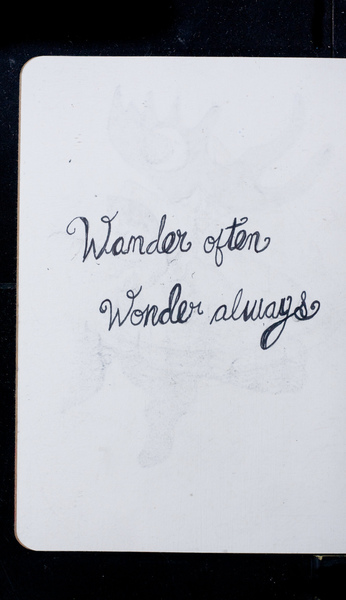 Wander often
Wonder always